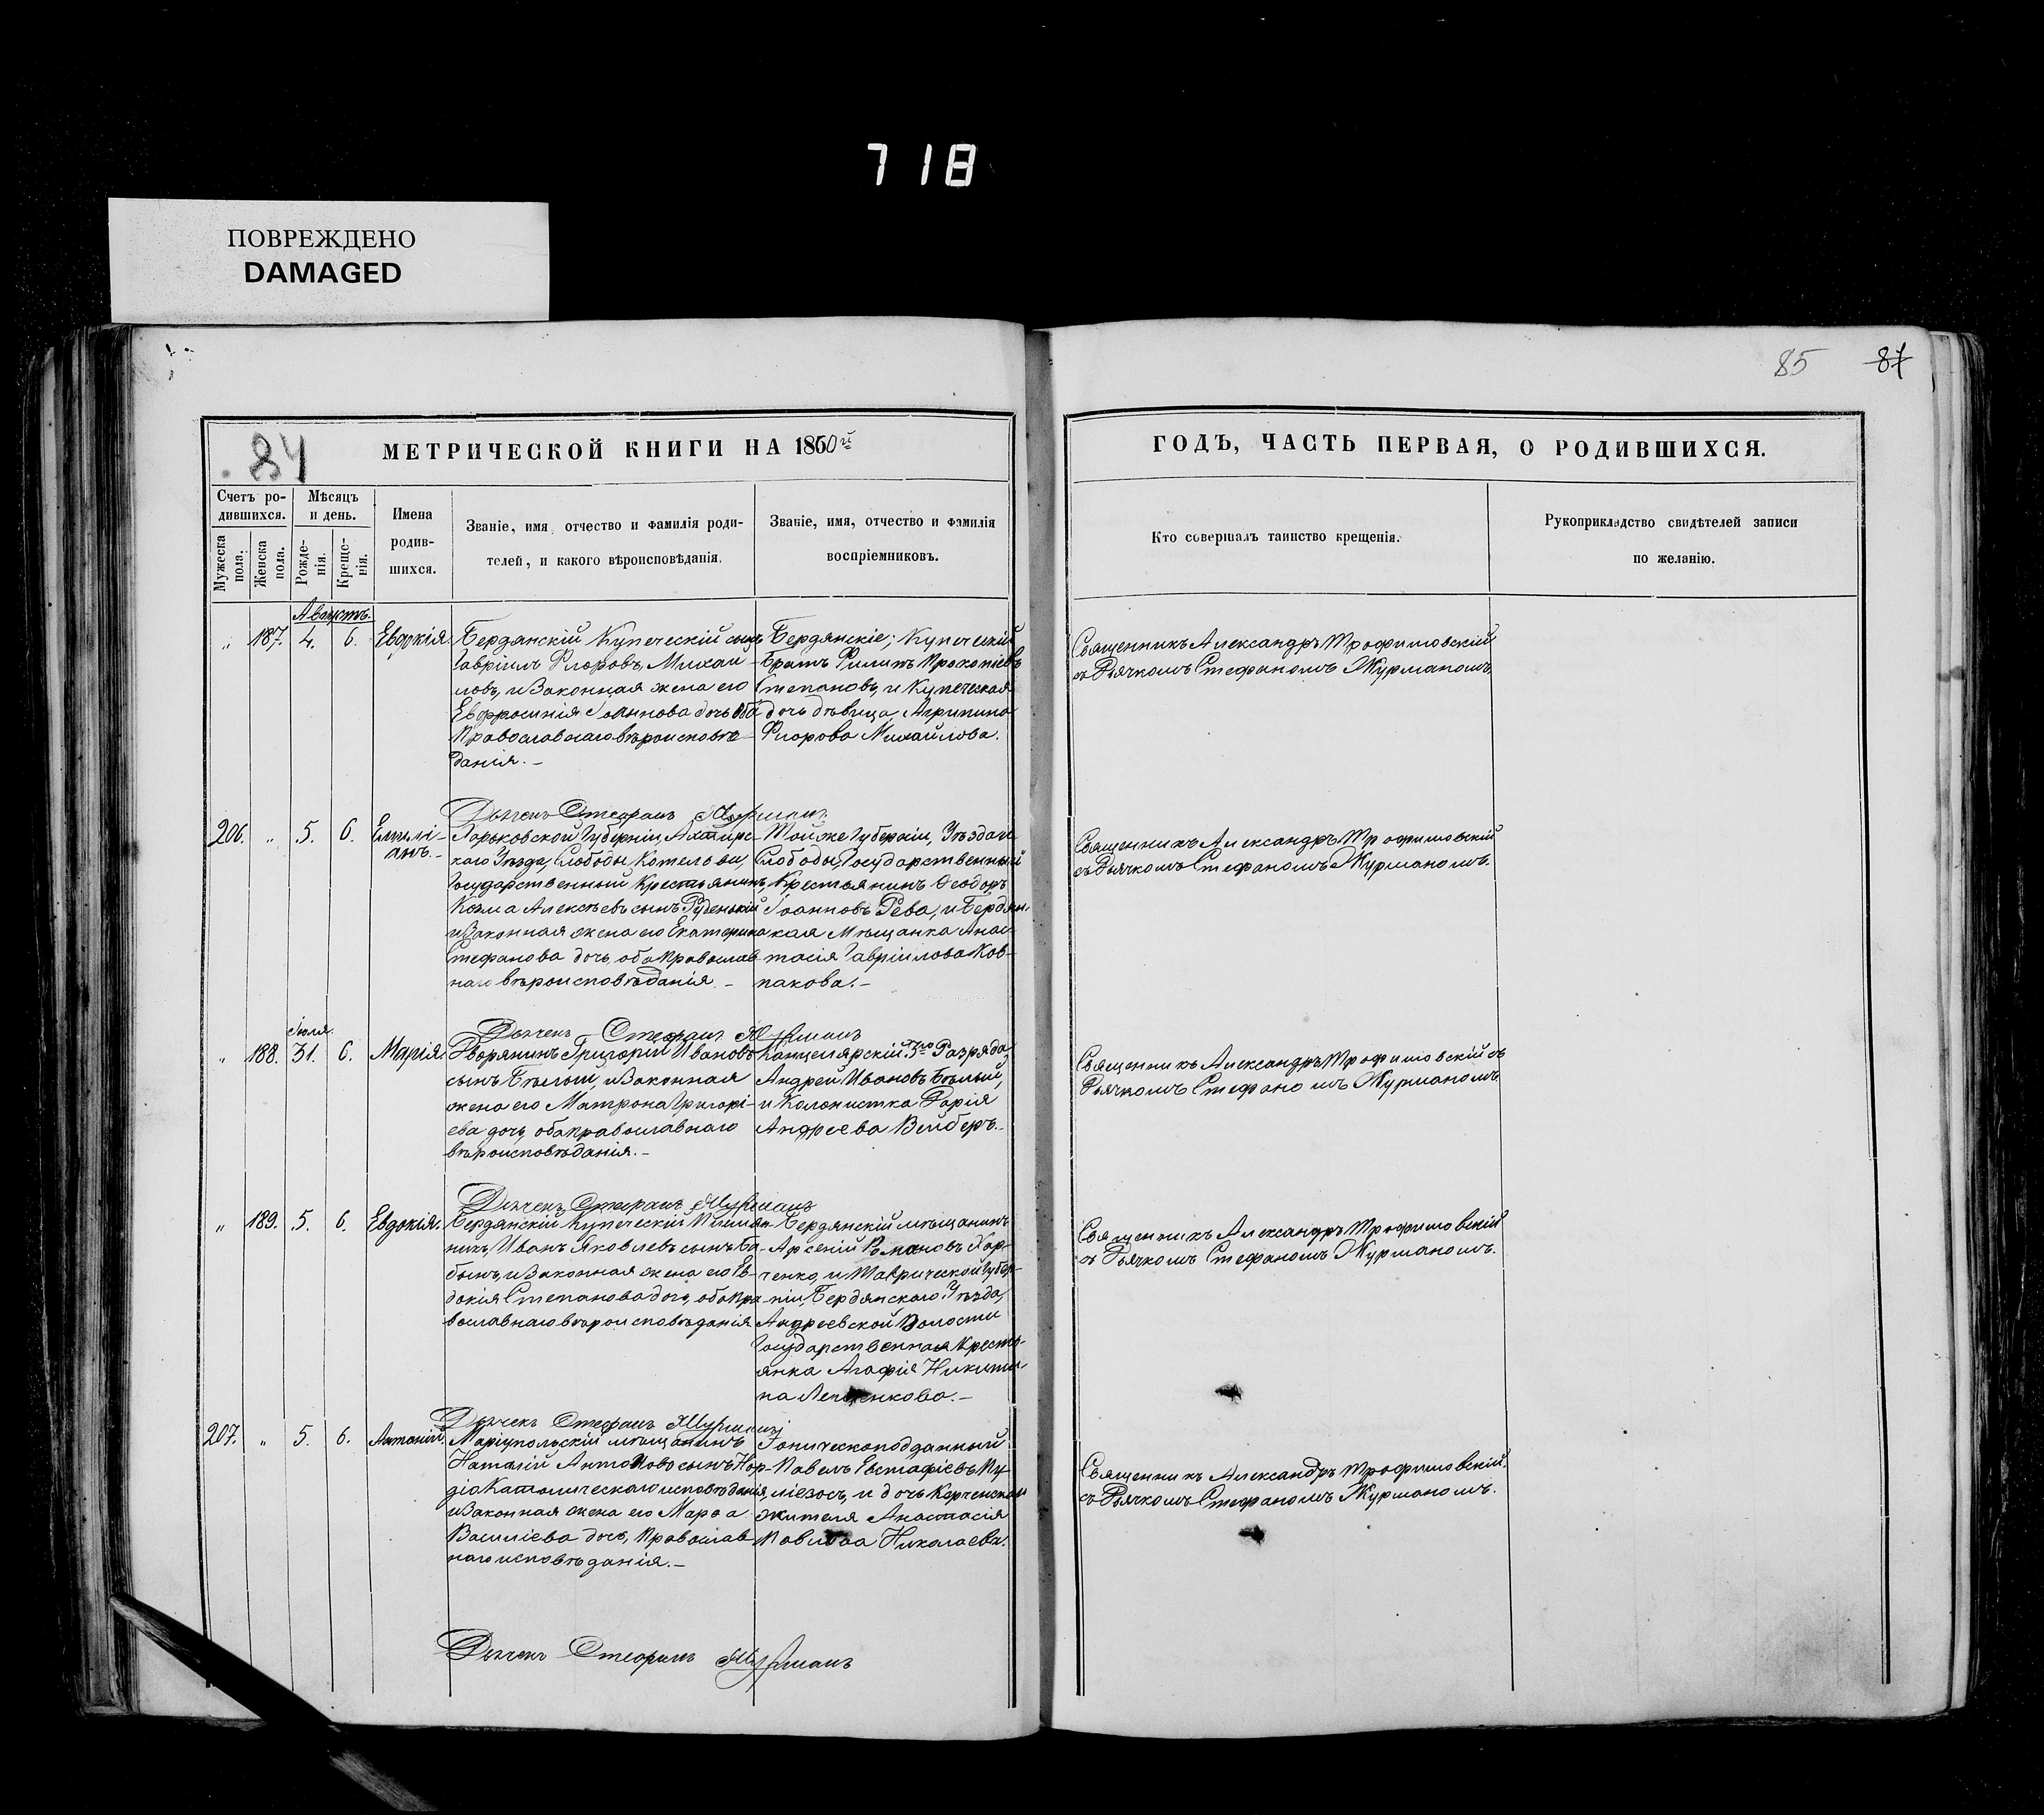 718
ПОВРЕЖДЕНО
DAMAGED
85 87
84
МЕТРИЧЕСКОЙ КНИГИ НА 1860й
ГОДЪ, ЧАСТЬ ПЕРВАЯ, О РОДИВШИХСЯ.
Счетъ ро-
дившихся.
Мужеска
пола.
Женска
пола.
Мѣсяцъ
и день.
Рожде-
нія.
Креще-
нія.
Имена
родив-
шихся.
Званіе, имя, отчество и фамилія роди-
телей, и какого вѣроисповѣданія.
Званіе, имя, отчество и фамилія
воспріемниковъ.
Кто совершалъ таинство крещенія.
Рукоприкладство свидѣтелей записи
по желанію.
Августъ.
„ 187. 4. 6. Евдокія.
Бердянскій Купеческій сынъ
Гавріилъ Флоровъ Михаи
ловъ, и Законная жена его
Евфросинія Іоаннова дочь оба
Православнаго вѣроисповѣ-
данія. –
Бердянскіе; Купеческій
Братъ Филипъ Прокопіевъ
Степановъ, и Купеческая
дочь дѣвица Агрипина
Флорова Михайлова.
Священникъ Александръ Трофимовскій
съ Дьячкомъ Стефаномъ Журманомъ.
Дьячекъ Стефанъ Журманъ
206. „ 5. 6. Емилі-
анъ. –
Харьковской Губерніи, Ахтирс-
каго Уѣзда, Слободы Котельвы,
Государственный Крестьянинъ,
Козма Алексѣевъ сынъ Руденькій
и Законная жена его Екатерина
Стефанова дочь, оба Православ-
наго вѣроисповѣданія. –
Той же Губерніи, Уѣзда и
Слободы, Государственный
Крестьянинъ Феодоръ
Іоанновъ Рева, и Бердянс-
кая Мѣщанка Анас-
тасія Гавріилова Ков-
пакова. –
Священникъ Александръ Трофимовскій
съ Дьячкомъ Стефаномъ Журманомъ.
Дьячекъ Стефанъ Журманъ
Іюля.
„ 188. 31. 6. Марія.
Дворянинъ Григорій Ивановъ
сынъ Бѣлый, и Законная
жена его Матрона Григорі-
ева дочь, оба православнаго
вѣроисповѣданія. –
Канцелярскій 3го Разряда,
Андрей Ивановъ Бѣлый,
и Колонистка Дарія
Андреева Вейберъ. –
Священникъ Александръ Трофимовскій съ
Дьячкомъ Стефаномъ Журманомъ.
Дьячекъ Стефанъ Журманъ
„ 189. 5. 6. Евдокія.
Бердянскій Купеческій Племян-
никъ, Иванъ Яковлевъ сынъ Ба-
бынъ, и Законная жена его Ев-
докія Степанова дочь, оба Пра-
вославнаго вѣроисповѣданія
Бердянскій мѣщанинъ
Арсеній Романовъ Хар-
ченко, и Таврической Губер-
ніи, Бердянскаго Уѣзда,
Андреевской Волости
Государственная Кресть-
янка Агафія Никити-
на
Священникъ Александръ Трофимовскій
съ Дьячкомъ Стефаномъ Журманомъ.
Дьячекъ Стефанъ Журманъ
207. „ 5. 6. Антоній.
Маріупольскій мѣщанинъ
Наталій Антоново сынъ Нор-
діо Католическаго исповѣданія,
и Законная жена его Марфа
Василіева дочь, Православ-
наго исповѣданія. –
Іоническоподданный
Павелъ Евстафіевъ Пу-
ліезосъ, и дочь Керченскаго
жителя Анастасія
Павлова Николаева.
Священникъ Александръ Трофимовскій.
съ Дьячкомъ Стефаномъ Журманомъ.
Дьячекъ Стефанъ Журманъ